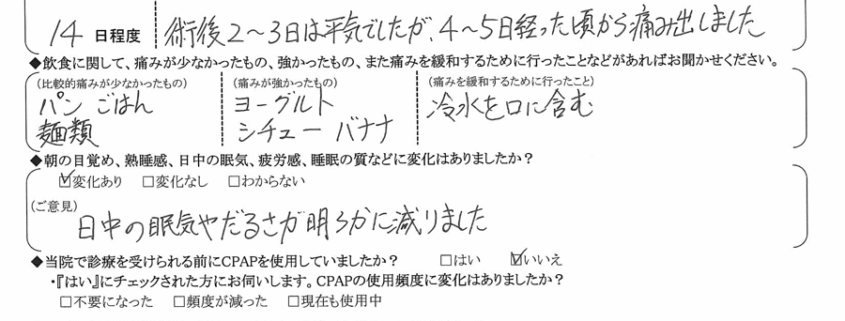 14 日程度 術後2〜3日は平気でしたが、4〜5日経った頃から痛み出しました
◆飲食に関して、痛みが少なかったもの、強かったもの、また痛みを緩和するために行ったことなどがあればお聞かせください。
(比較的痛みが少なかったもの) (痛みが強かったもの) (痛みを緩和するために行ったこと)
パン ごはん ヨーグルト 冷水を口に含む
麺類 シチュー バナナ
◆朝の目覚め、熟睡感、日中の眠気、疲労感、睡眠の質などに変化はありましたか?
☑変化あり □変化なし □わからない
(ご意見)
日中の眠気やだるさが明らかに減りました
◆当院で診療を受けられる前にCPAPを使用していましたか? □はい ☑いいえ
・『はい』にチェックされた方にお伺いします。CPAPの使用頻度に変化はありましたか?
□不要になった □頻度が減った □現在も使用中